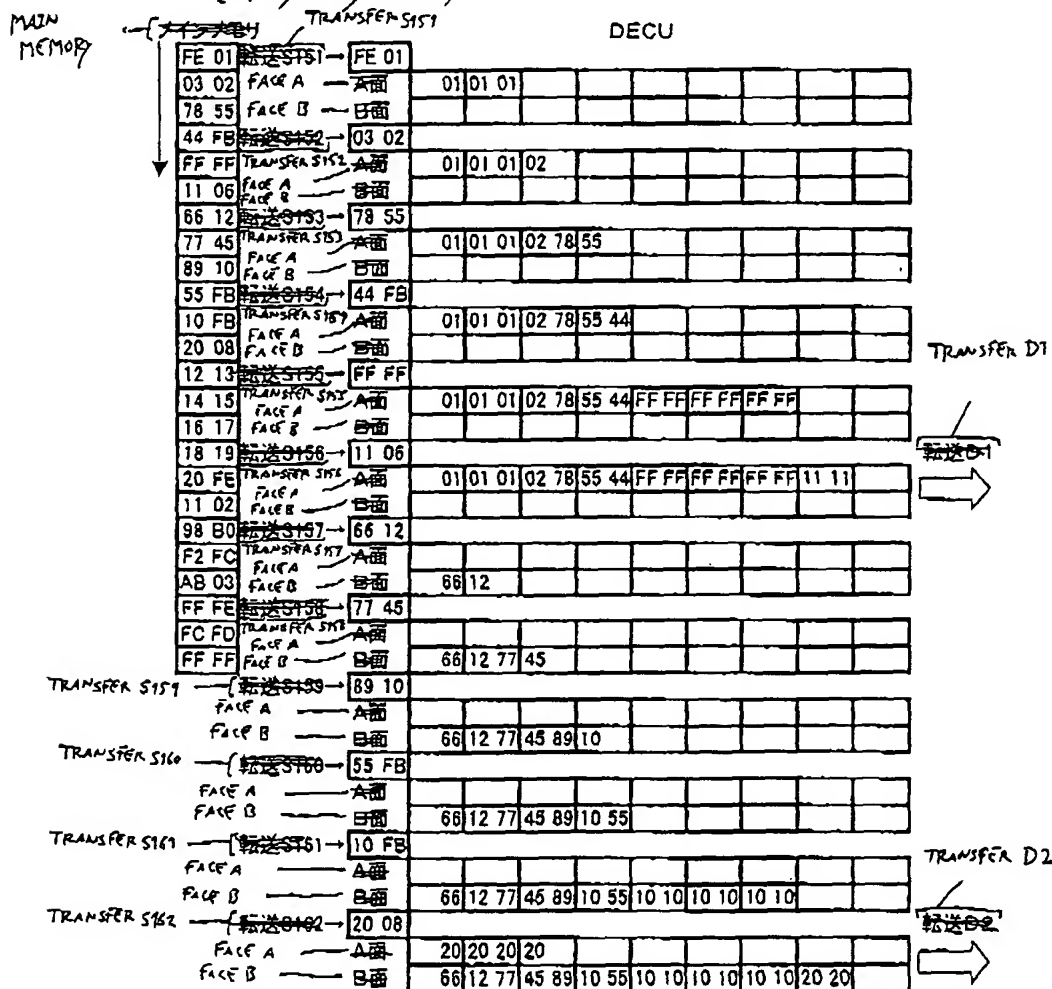 TRANSFER S151
MAIN MEMORY メインメモリ DECU
FE 01 転送S151 → FE 01
03 02 FACE A A面 01 01 01
78 55 FACE B B面
44 FB 転送S152 → 03 02
FF FF TRANSFER S152 FACE A A面 01 01 01 02
11 06 FACE B B面
66 12 転送S153 → 78 55
77 45 TRANSFER S153 FACE A A面 01 01 01 02 78 55
89 10 FACE B B面
55 FB 転送S154 → 44 FB
10 FB TRANSFER S154 FACE A A面 01 01 01 02 78 55 44
20 08 FACE B B面
TRANSFER D1
12 13 転送S155 → FF FF
14 15 TRANSFER S155 FACE A A面 01 01 01 02 78 55 44 FF FF FF FF FF FF
16 17 FACE B B面
18 19 転送S156 → 11 06 転送D1
20 FE TRANSFER S156 FACE A A面 01 01 01 02 78 55 44 FF FF FF FF FF FF 11 11
11 02 FACE B B面
98 B0 転送S157 → 66 12
F2 FC TRANSFER S157 FACE A A面
AB 03 FACE B B面 66 12
FF FE 転送S158 → 77 45
FC FD TRANSFER S158 FACE A A面
FF FF FACE B B面 66 12 77 45
TRANSFER S159 転送S159 → 89 10
FACE A A面
FACE B B面 66 12 77 45 89 10
TRANSFER S160 転送S160 → 55 FB
FACE A A面
FACE B B面 66 12 77 45 89 10 55
TRANSFER S161 転送S161 → 10 FB
TRANSFER D2
FACE A A面
FACE B B面 66 12 77 45 89 10 55 10 10 10 10 10 10
TRANSFER S162 転送S162 → 20 08 転送D2
FACE A A面 20 20 20 20
FACE B B面 66 12 77 45 89 10 55 10 10 10 10 10 10 20 20